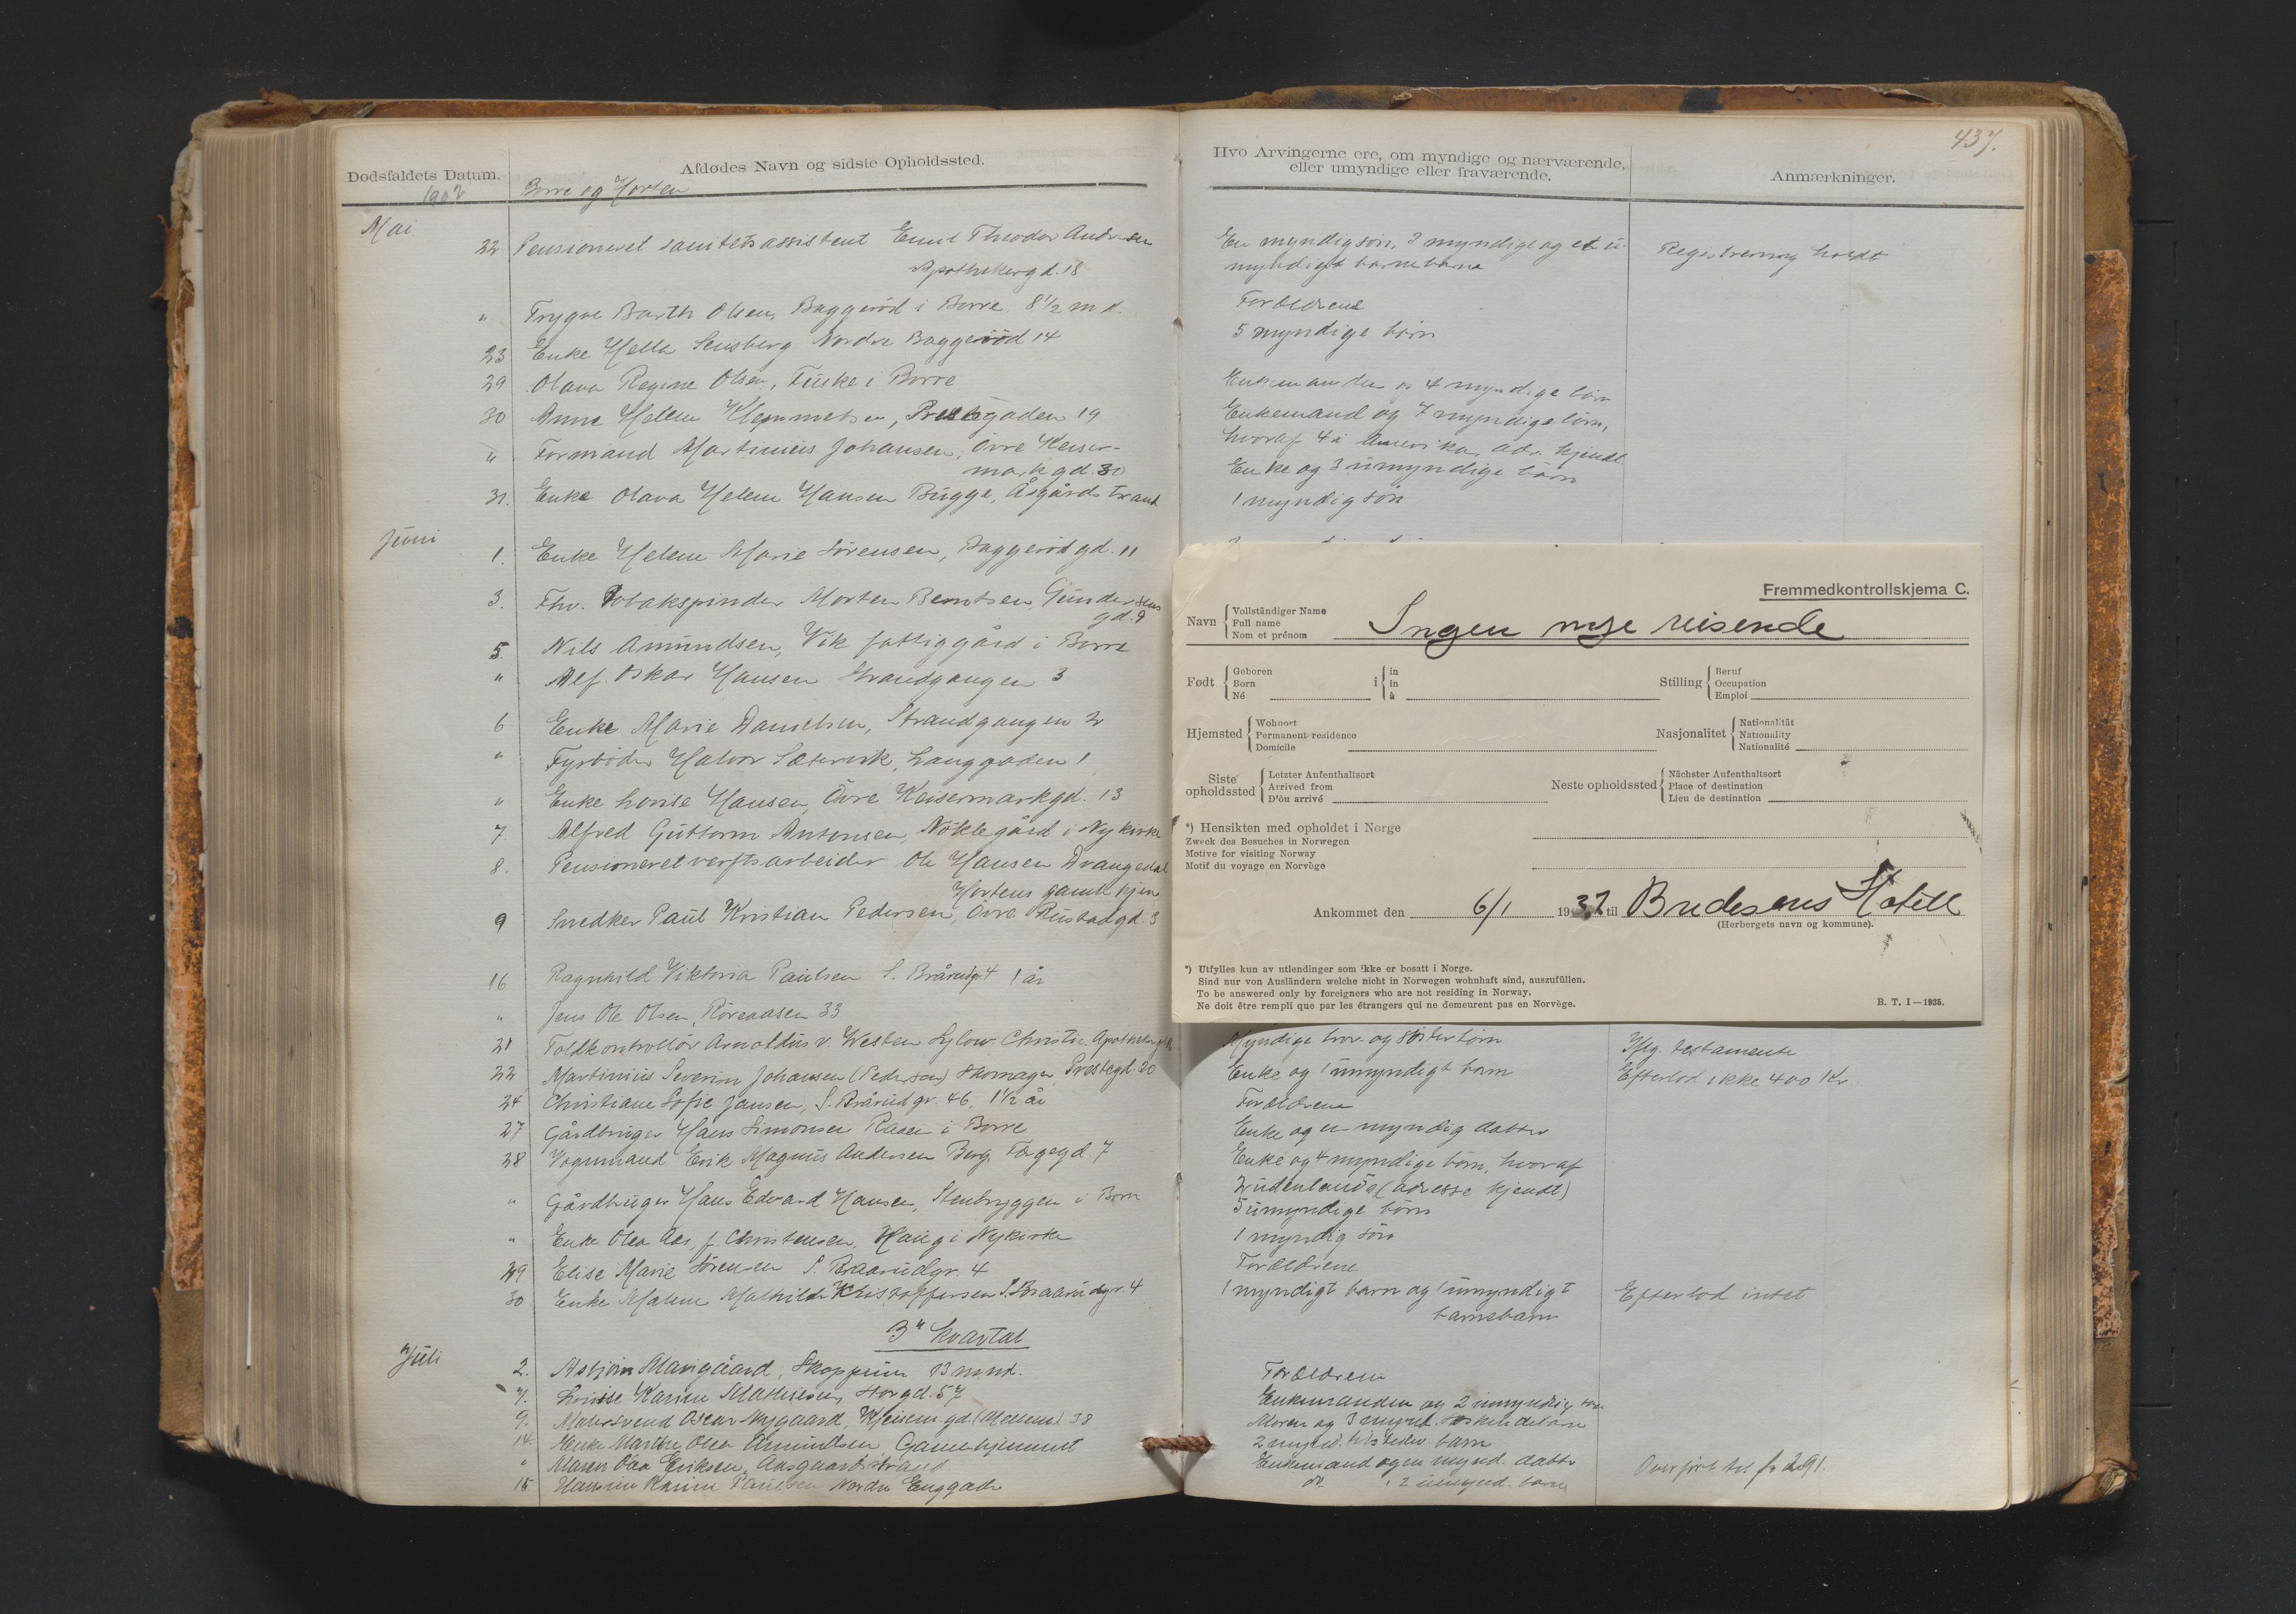 437.
Dødsfaldets Datum.
Afdødes Navn og sidste Opholdssted.
1902
Borre og Horten
Mai
22 Pensioneret sanitetsassistent Emil Theodor Andersen
Apothekergd. 18
" Trygve Barth Olsen, Baggerød i Borre 8 1/2 md.
23 Enke Helle Sensberg Nordre Baggerød 14
29 Olava Regine Olsen, Fuske i Borre
30 Anne Helene Klemmetsen, Prestegaden 19
" Formand Martinius Johansen, Övre Keiser-
markgd. 30
31. Enke Olava Helene Hansen Bugge, Åsgårdstrand
Juni
1. Enke Helene Marie Sørensen, Baggerødgd. 11
3. Fhv. Tobakspinder Morten Berntsen, Gundersens
gd. 9
5. Nils Amundsen, Vik fattiggård i Borre
" Alf Oskar Hansen Strandgangen 3
6 Enke Marie Danielsen, Strandgangen 2
" Fyrbøder Halvor Sætervik, Langgaden 1
" Enke Lovise Hansen, Övre Keisermarkgd. 13
7 Alfred Guttorm Antonsen, Nöklegård i Nykirke
8. Pensioneret verftsarbeider Ole Hansen Drangedal
Hortens gamlehjem
9 Snedker Paul Kristian Pedersen, Övre Rustadgd. 3
16 Ragnhild Viktoria Paulsen S. Brårudgr. 4 1 år
" Jens Ole Olsen, Röreaasen 33
21 Toldkontrollör Arnoldus v. Westen Sylow Christie Apothekergd.
22 Martinius Severin Johansen (Pedersen) Skomager, Prestegd. 20
24 Christiane Sofie Jansen, S. Brårudgr. 46, 1 1/2 år
27 Gårdbruger Hans Simonsen Raaen i Borre
28 Vognmand Erik Magnus Andersen Berg, Færgegd. 7
" Gårdbruger Hans Edvard Hansen, Stenbryggen i Borre
" Enke Olea Aas, f. Christensen, Haug i Nykirke
29 Elise Marie Sørensen S. Braarudgr. 4
30 Enke Malene Mathilde Kristoffersen S. Braarudgr. 4
3die Kvartal
Juli
2. Asbjörn Mangaard, Skoppum 13 mnd.
7. Lovise Karine Mathisen, Storgd. 57
9. Malersvend Oscar Nygaard, Keiserm.gd. (Mellem) 38
14. Enke Marthe Olea Amundsen, Gamlehjemmet
" Maren Olea Eriksen, Aasgaardstrand
15 Karine Paulsen Nordre Enggade
Hvo Arvingerne ere, om myndige og nærværende,
eller umyndige eller fraværende.
Anmærkninger.
En myndig søn, 3 myndige og et u-
myndigt barnebarn
Registrering holdt
Forældrene
5 myndige børn
Enkemanden og 4 myndige børn
Enkemand og 7 myndige børn,
hvoraf 4 i Amerika, adr. kjendt
Enke og 3 umyndige børn
1 myndig søn
Fremmedkontrollskjema C.
Navn { Vollständiger Name
Full name
Nom et prénom
Ingen nye reisende
Født { Geboren
Born
Né
i { in
in
à
Stilling { Beruf
Occupation
Emploi
Hjemsted { Wohnort
Permanent residence
Domicile
Nasjonalitet { Nationalität
Nationality
Nationalité
Siste
opholdssted { Letzter Aufenthaltsort
Arrived from
D'òu arrivé
Neste opholdssted { Nächster Aufenthaltsort
Place of destination
Lieu de destination
*) Hensikten med opholdet i Norge
Zweck des Besuches in Norwegen
Motive for visiting Norway
Motif du voyage en Norvège
Ankommet den 6/1 1937 til Bredesens Hotell
(Herbergets navn og kommune).
*) Utfylles kun av utlendinger som ikke er bosatt i Norge.
Sind nur von Ausländern welche nicht in Norwegen wohnhaft sind, auszufüllen.
To be answered only by foreigners who are not residing in Norway.
Ne doit être rempli que par les étrangers qui ne demeurent pas en Norvège.
B. T. I—1935.
Myndige bror og søsterbørn
testamente
Enke og 1 umyndigt barn
Efterlod ikke 400 Kr.
Forældrene
Enke og en myndig datter
Enke og 4 myndige børn, hvoraf
2 udenlands (adresse kjendt)
5 umyndige børn
1 myndig søn
Forældrene
1 myndigt barn og 1 umyndigt
barnebarn
Efterlod intet
Forældrene
Enkemanden og 2 umyndig børn
Moren og 3 mynd. søskendebarn
2 mynd. tilstedev. barn
Enkemand og en mynd. datter
do. 2 umynd. barn
Overført til fo 291.